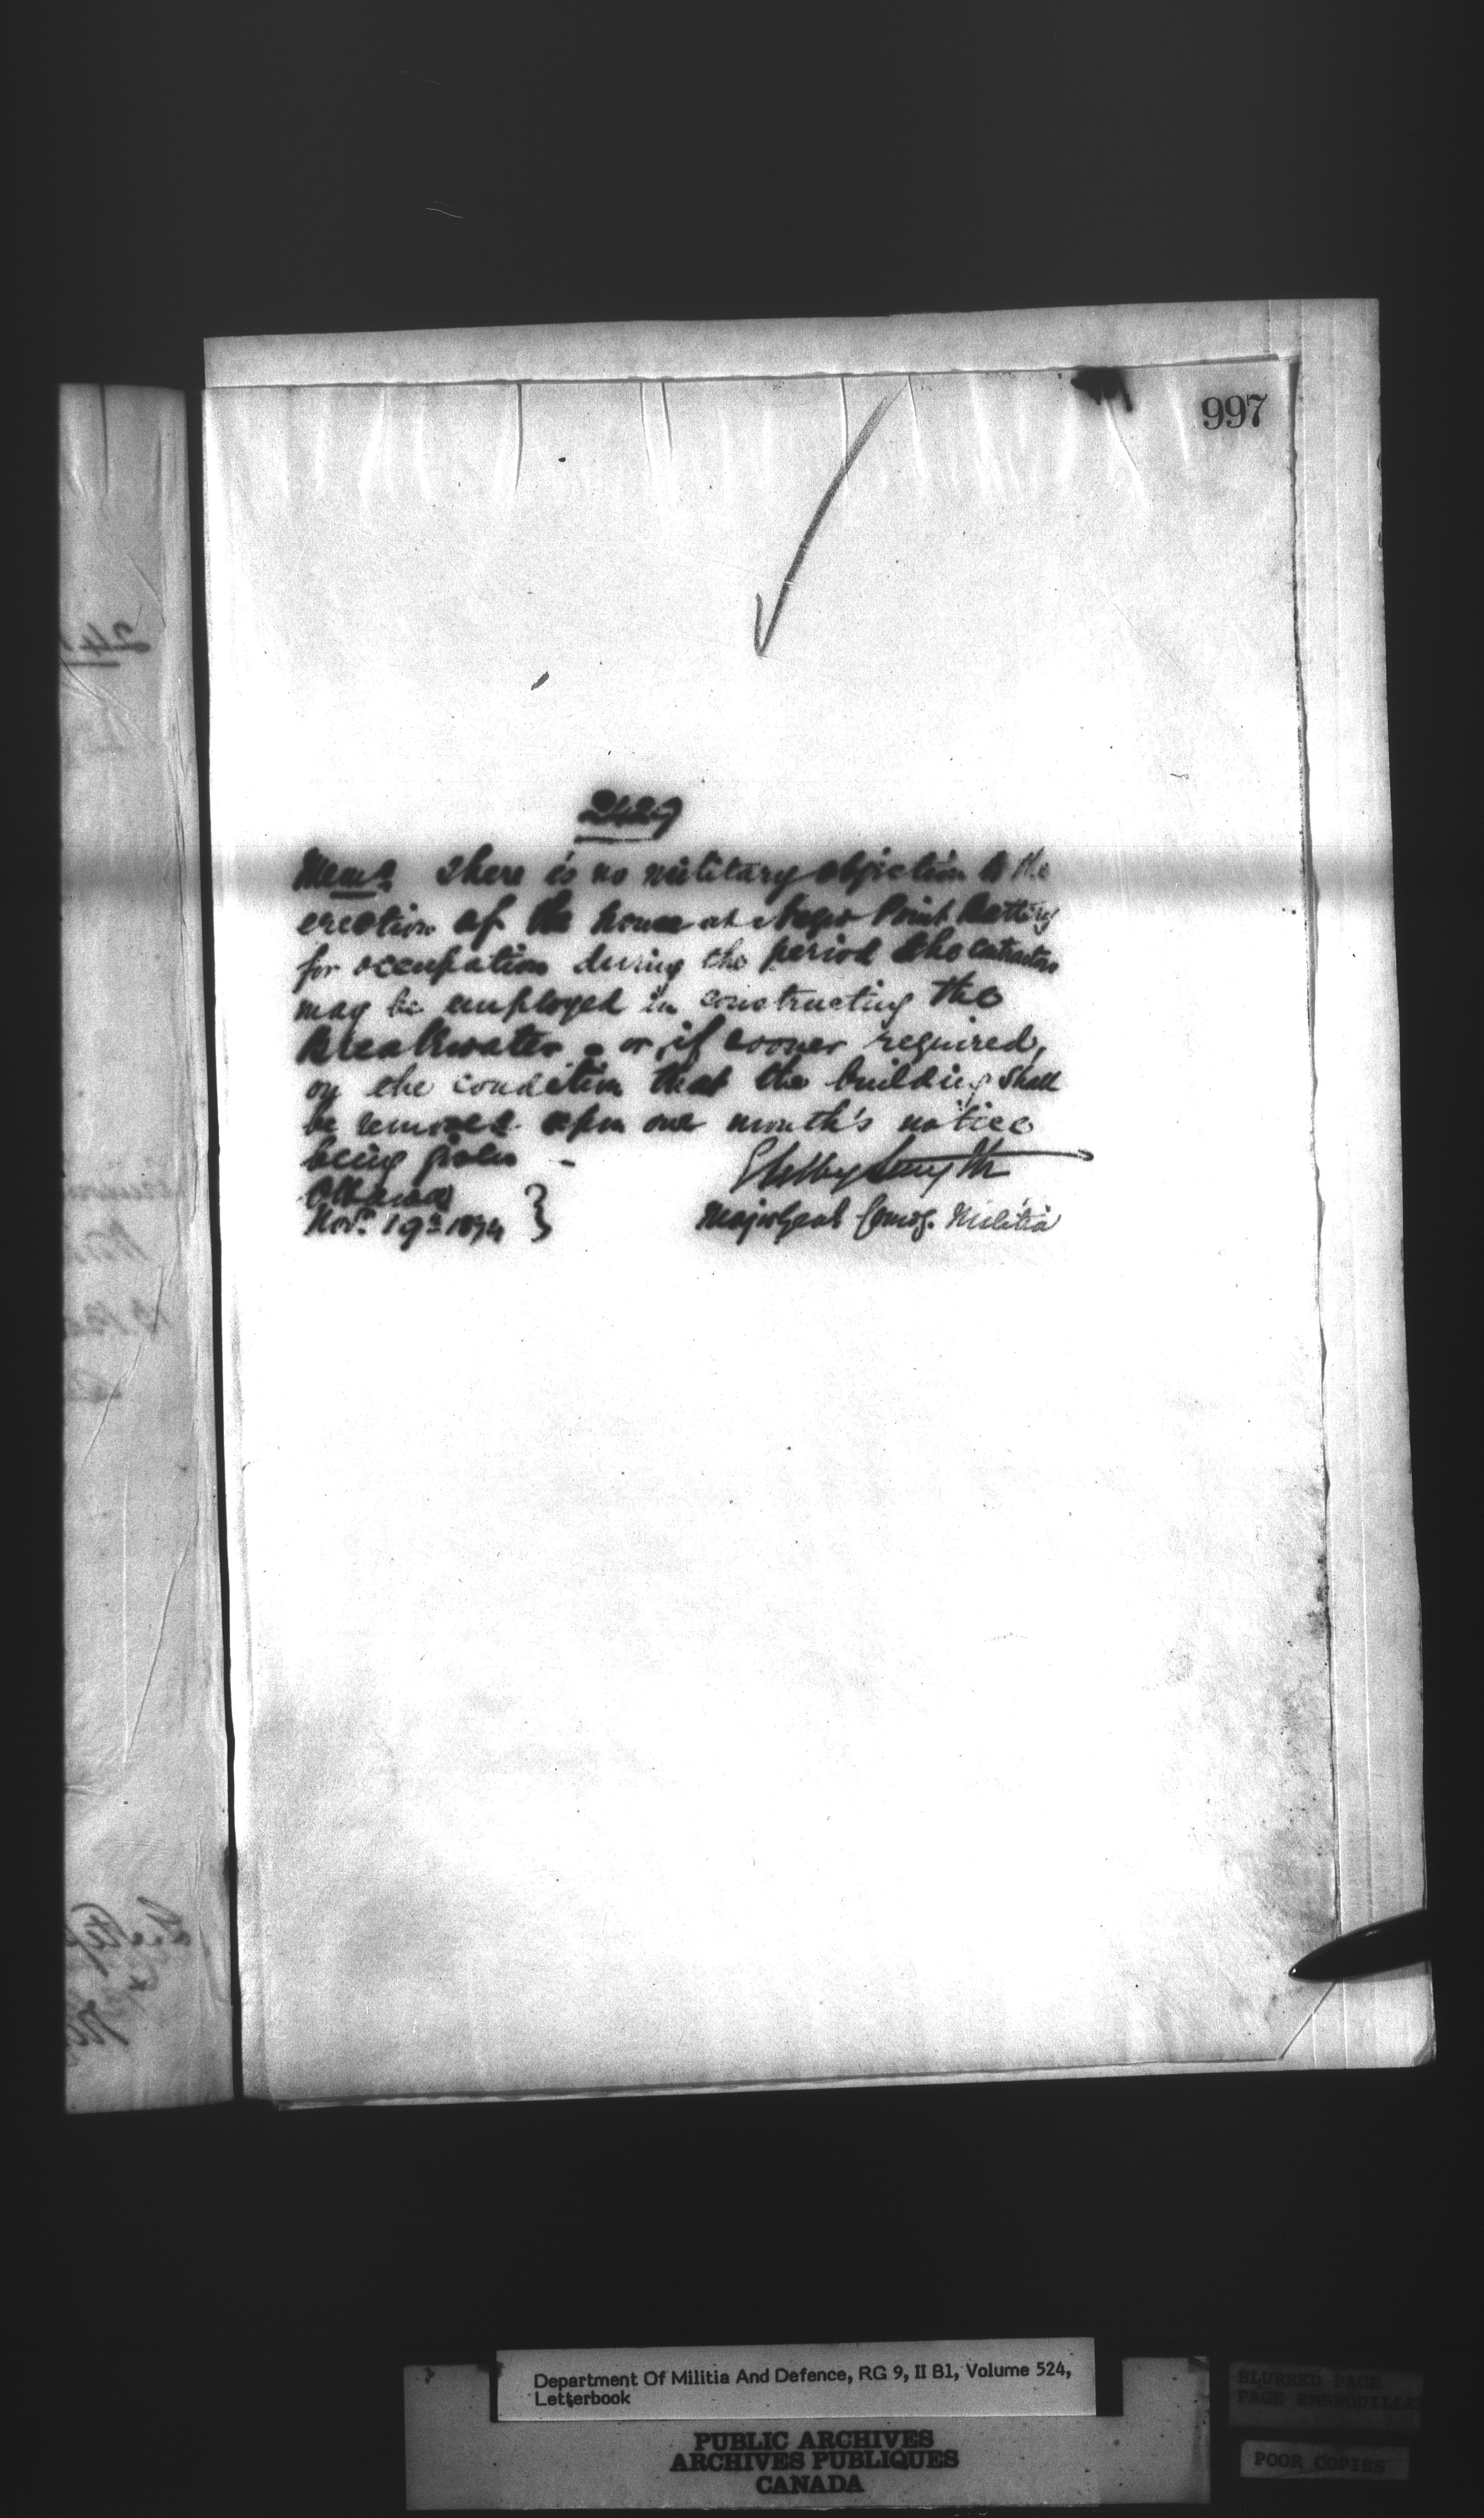 997
2429
Memo There is no military objection to the
erection of the house at Negro Point Battery
for occupation during the period the contractors
may be employed in constructing the
Breakwater - or if sooner required,
on the condition that the building shall
be removed upon one month's notice
being given -
Ottawa
Novr. 19th 1874
E Selby Smyth
Major Genl Comg. Militia
Department Of Militia And Defence, RG 9, II B1, Volume 524,
Letterbook
PUBLIC ARCHIVES
ARCHIVES PUBLIQUES
CANADA
BLURRED PAGE
PAGE EMBROUILLEE
POOR COPIES